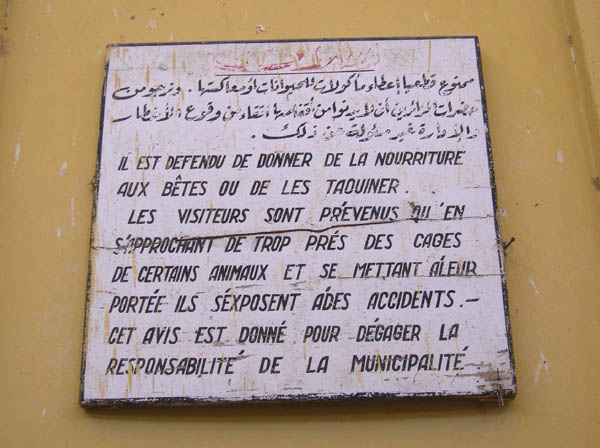 ممنوع قطعيا إعطاء مأكولات للحيوانات أو معاكستها . ونرجو من
حضرات الزائرين أن لا يدنوا من أقفاصها اتقاء من وقوع الأخطار
والإدارة غير مسئولة عن ذلك .
IL EST DEFENDU DE DONNER DE LA NOURRITURE
AUX BÊTES OU DE LES TAQUINER .
LES VISITEURS SONT PRÉVENUS QU'EN
S'APPROCHANT DE TROP PRÉS DES CAGES
DE CERTAINS ANIMAUX ET SE METTANT A'LEUR
PORTÉE ILS S'EXPOSENT A'DES ACCIDENTS . —
CET AVIS EST DONNÉ POUR DÉGAGER LA
RESPONSABILITÉ DE LA MUNICIPALITÉ